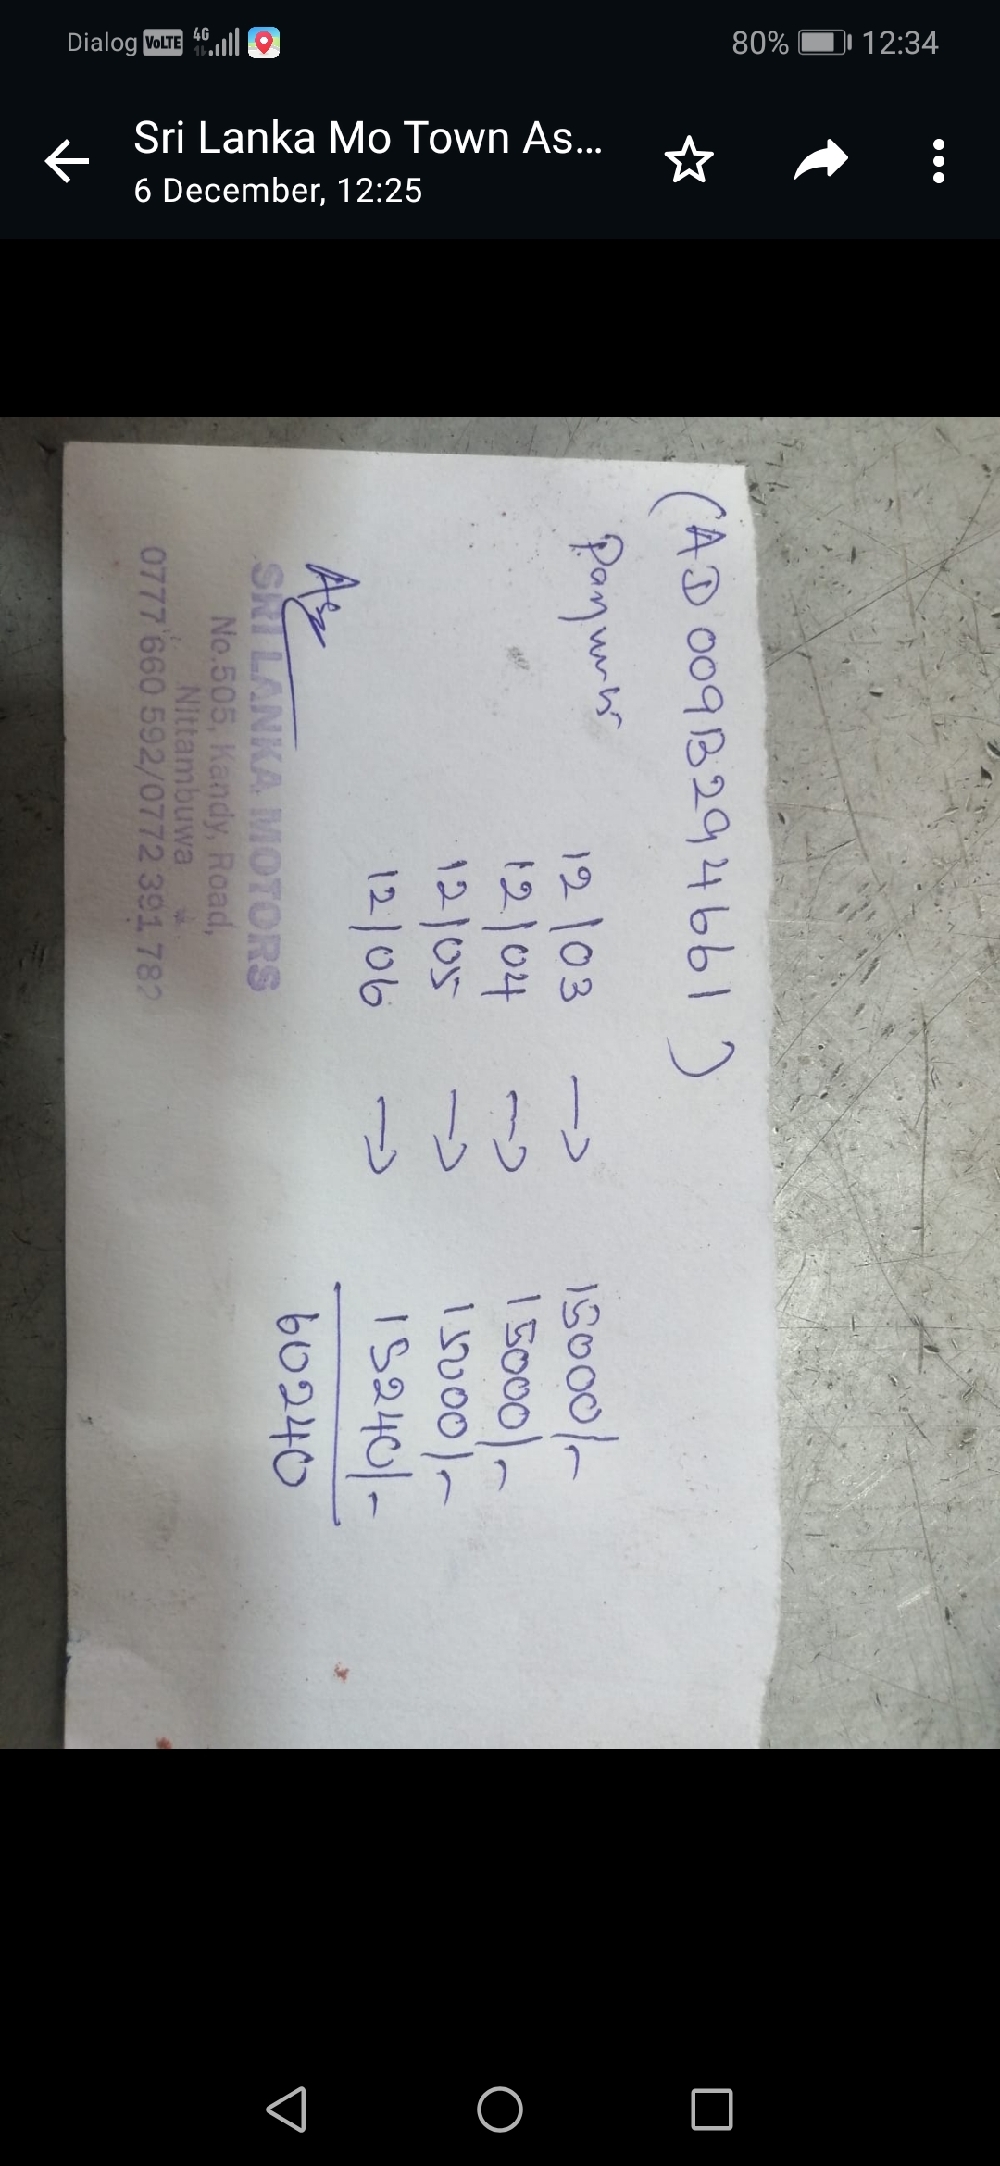 Dialog VoLTE 4G 80% 12:34
Sri Lanka Mo Town As...
6 December, 12:25
(AD009B294661)
Payments
12/03 → 15000/-
12/04 → 15000/-
12/05 → 15000/-
12/06 → 15240/-
60240
SRI LANKA MOTORS
No.505, Kandy, Road,
Nittambuwa
0777 660 592/0772 391 782